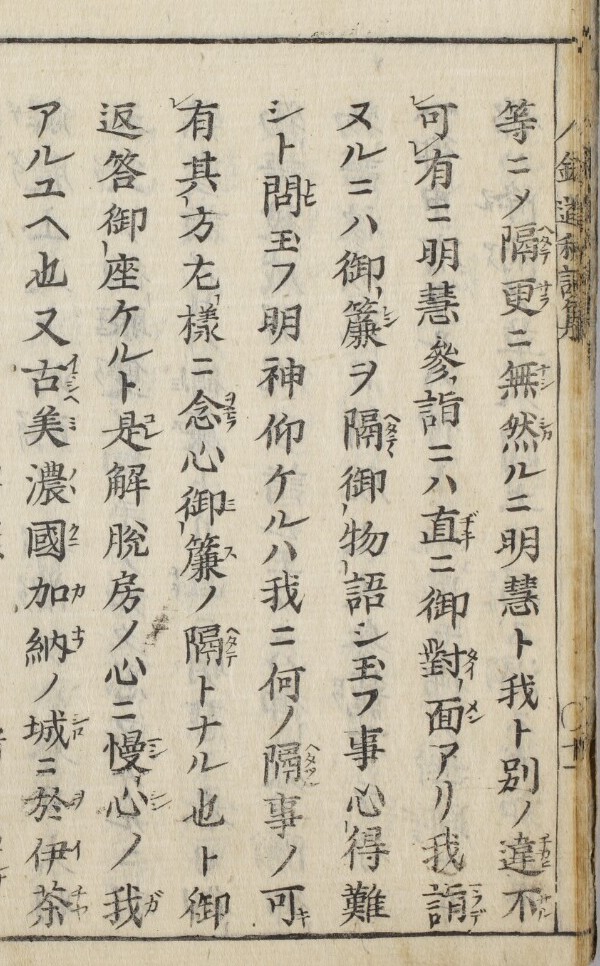 等ニメ隔更ニ無然ルニ明慧ト我ト別ノ違不
可有ニ明慧參詣ニハ直ニ御對面アリ我詣
ヌルニハ御簾ヲ隔御物語シ玉フ事心得難
シト問玉フ明神仰ケルハ我ニ何ノ隔事ノ可
有其方左樣ニ念心御簾ノ隔トナル也ト御
返答御座ケルト是解脫房ノ心ニ慢心ノ我
アルユヘ也又古美濃國加納ノ城ニ於伊茶